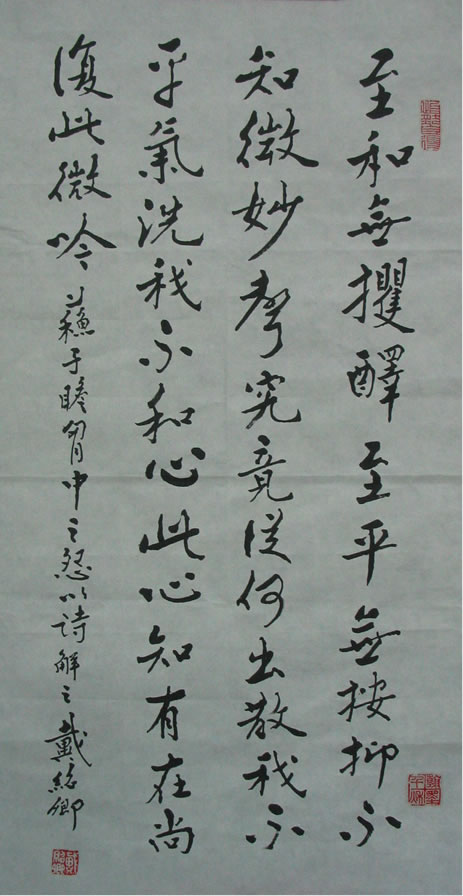 至和無攫醳至平無按抑不
知微妙聲究竟從何出散我不
平氣洗我不和心此心知有在尚
復此微吟 蘓子瞻胷中之怨以詩解之 戴卿